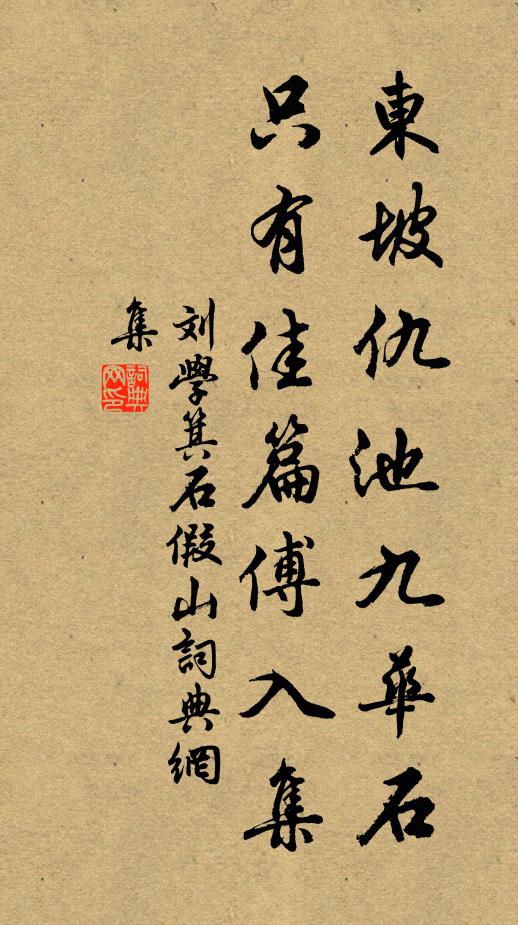 東坡仇池九華石
只有佳篇傅入集
刘學箕石假山詞典網
集
詞典
网印